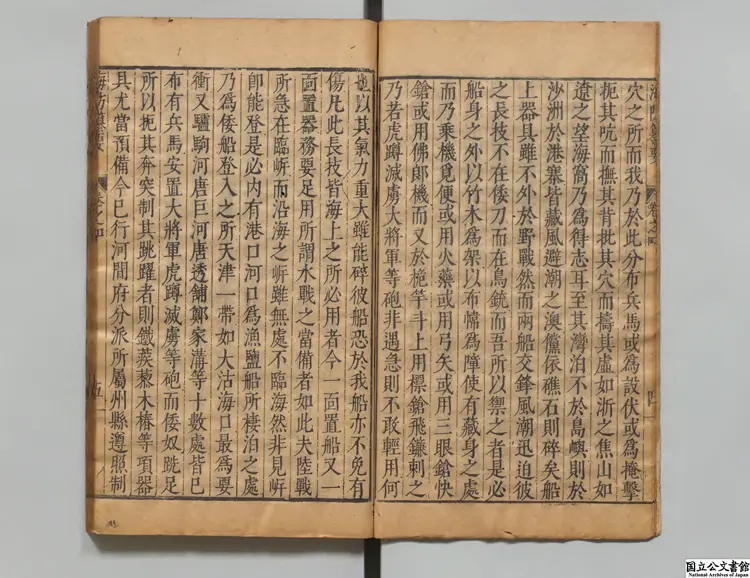 穴之所而我乃於此分布兵馬或爲設伏或爲掩擊
扼其吭而撫其背批其穴而擣其虛如浙之焦山如
遼之望海窩乃爲得志耳至其灣泊不於島嶼則於
沙洲於港寨皆藏風避潮之澳儻依礁石則碎矣船
上器具雖不外於野戰然而兩船交鋒風潮迅迫彼
之長技不在倭刀而在鳥銃而吾所以禦之者是必
船身之外以竹木爲架以布幃爲障使有藏身之處
而乃乘機覓便或用火藥或用弓矢或用三眼鎗快
鎗或用佛郎機而又於桅竿斗上用標鎗飛鐮刺之
乃若虎蹲滅虜大將軍等砲非遇急則不敢輕用何
也以其氣力重大雖能碎彼船恐於我船亦不免有
傷凡此長技皆海上之所必用者今一面置船又一
面置器務要足用所謂水戰之當備者如此夫陸戰
所急在臨岸而沿海之岸雖無處不臨海然非見岸
卽能登是必內有港口河口爲漁鹽船所棲泊之處
乃爲倭船登入之所天津一帶如大沽海口最爲要
衝又驢駒河唐巨河唐透舖鄭家溝等十數處皆已
布有兵馬安置大將軍虎蹲滅虜等砲而倭奴跣足
所以扼其奔突制其跳躍者則鐵蒺藜木樁等項器
具尤當預備今已行河間府分派所屬州縣遵照制
卷之四
五
国立公文書館
National Archives of Japan